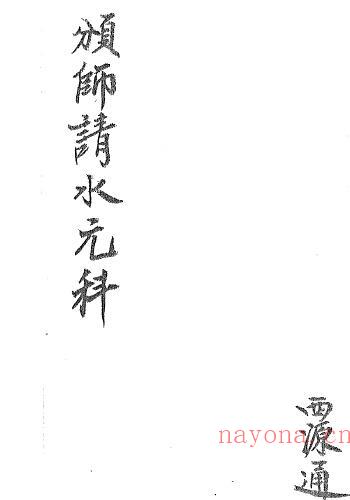 頒師請水元科
西源通
nayona.cn